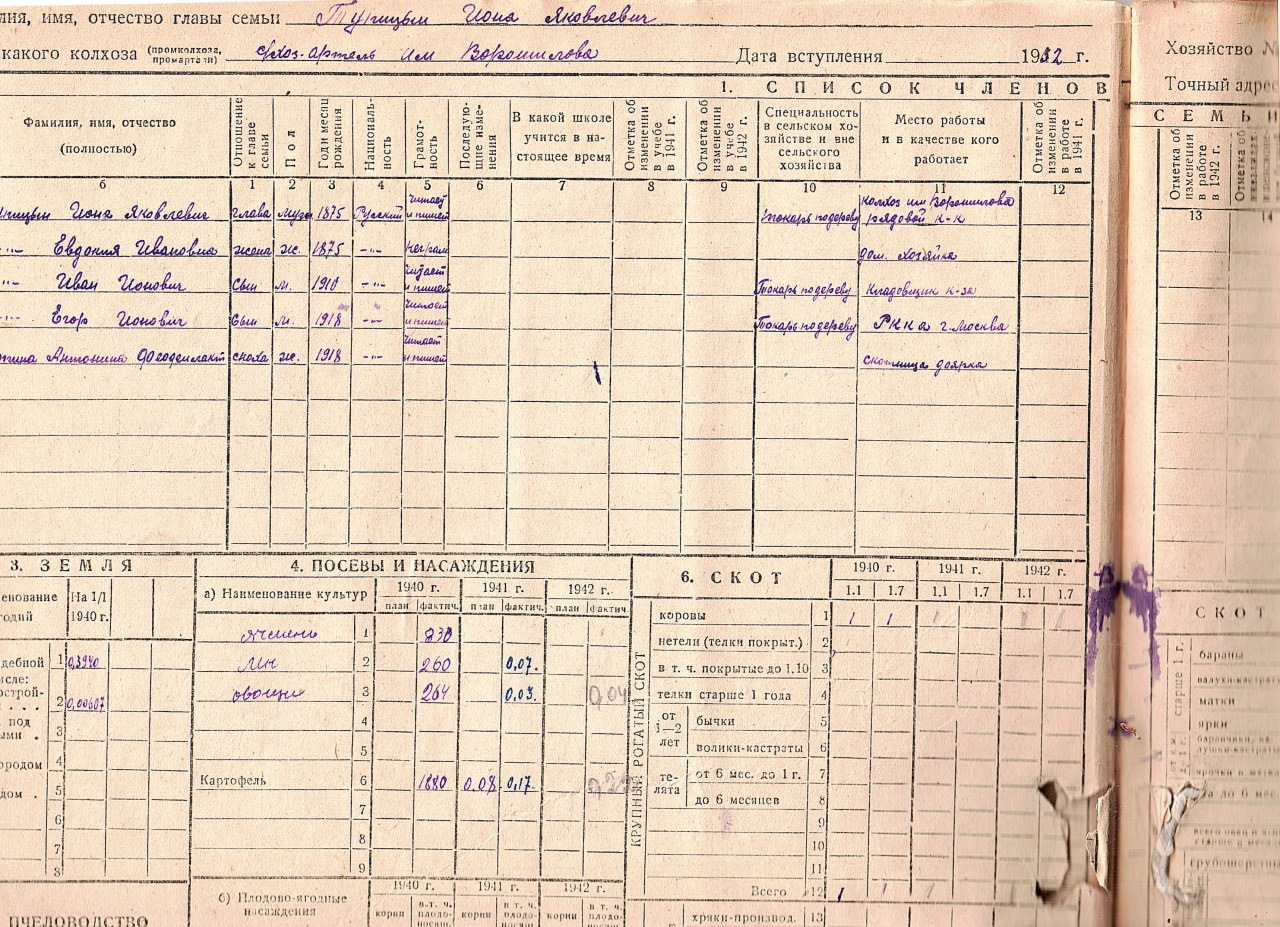 лия, имя, отчество главы семьи Иона Яковлевич
какого колхоза (промколхоза, промартели) с/хоз. артель им Ворошилова Дата вступления 1932 г.
1. СПИСОК ЧЛЕНОВ
Фамилия, имя, отчество (полностью) Отношение к главе семьи Пол Год и месяц рождения Националь-ность Грамот-ность Последую-щие изме-нения В какой школе учится в на-стоящее время Отметка об изменении в учебе в 1941 г. Отметка об изменении в учебе в 1942 г. Специальность в сельском хо-зяйстве и вне сельского хозяйства Место работы и в качестве кого работает Отметка об изменении в работе в 1941 г.
6 1 2 3 4 5 6 7 8 9 10 11 12
Иона Яковлевич глава муж 1875 Русский читает и пишет токарь по дереву колхоз им Ворошилова рядовой к-к
-"- Евдокия Ивановна жена ж. 1875 -"- неграм дом. хозяйка
-"- Иван Ионович сын м. 1910 -"- читает и пишет Токарь по дереву Кладовщик к-за
-"- Егор Ионович сын м. 1918 -"- читает и пишет Токарь по дереву РККА г. Москва
Антонина сноха ж. 1918 -"- читает и пишет скотница доярка
3. ЗЕМЛЯ
енование годий На 1/I 1940 г.
дебной 1 0,3940
исле:
острой- 2 0,00607
под
ыми . 3
ородом 4
дом . 5
6
7
8
ПЧЕЛОВОДСТВО
4. ПОСЕВЫ И НАСАЖДЕНИЯ
а) Наименование культур 1940 г. 1941 г. 1942 г.
план фактич. план фактич. план фактич.
ячмень 1 230
лён 2 260 0,07.
овощи 3 264 0.03. 0,04
4
5
Картофель 6 1880 0,08 0,17.
7
8
9
б) Плодово-ягодные насаждения 1940 г. 1941 г. 1942 г.
корни в т. ч. плодо-носящ. корни в т. ч. плодо-носящ. корни в т. ч. плодо-носящ.
6. СКОТ 1940 г. 1941 г. 1942 г.
1.1 1.7 1.1 1.7 1.1 1.7
КРУПНЫЙ РОГАТЫЙ СКОТ
коровы 1 1 1 1 1 1 1
нетели (телки покрыт.) 2
в т. ч. покрытые до 1.10 3
телки старше 1 года 4
от 1—2 лет бычки 5
волики-кастраты 6
те-лята от 6 мес. до 1 г. 7
до 6 месяцев 8
9
10
11
Всего 12 1 1 1
хряки-производ. 13
Хозяйство №
Точный адрес
СЕМЬИ
Отметка об изменении в работе в 1942 г. Отметка об
13 14
СКОТ
старше 1 г.
бараны
валухи-кастраты
матки
ярки
до 6 мес.
всего овец и
старше
грубошерстны